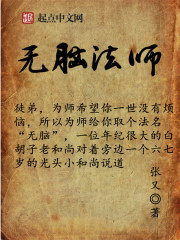 起点中文网
www.qidian.com
无脑法师
徒弟,为师希望你一世没有烦
恼,所以为师给你取个法名
“无脑”,一位年纪很大的白
胡子老和尚对着旁边一个六七
岁的光头小和尚说道
张又
著